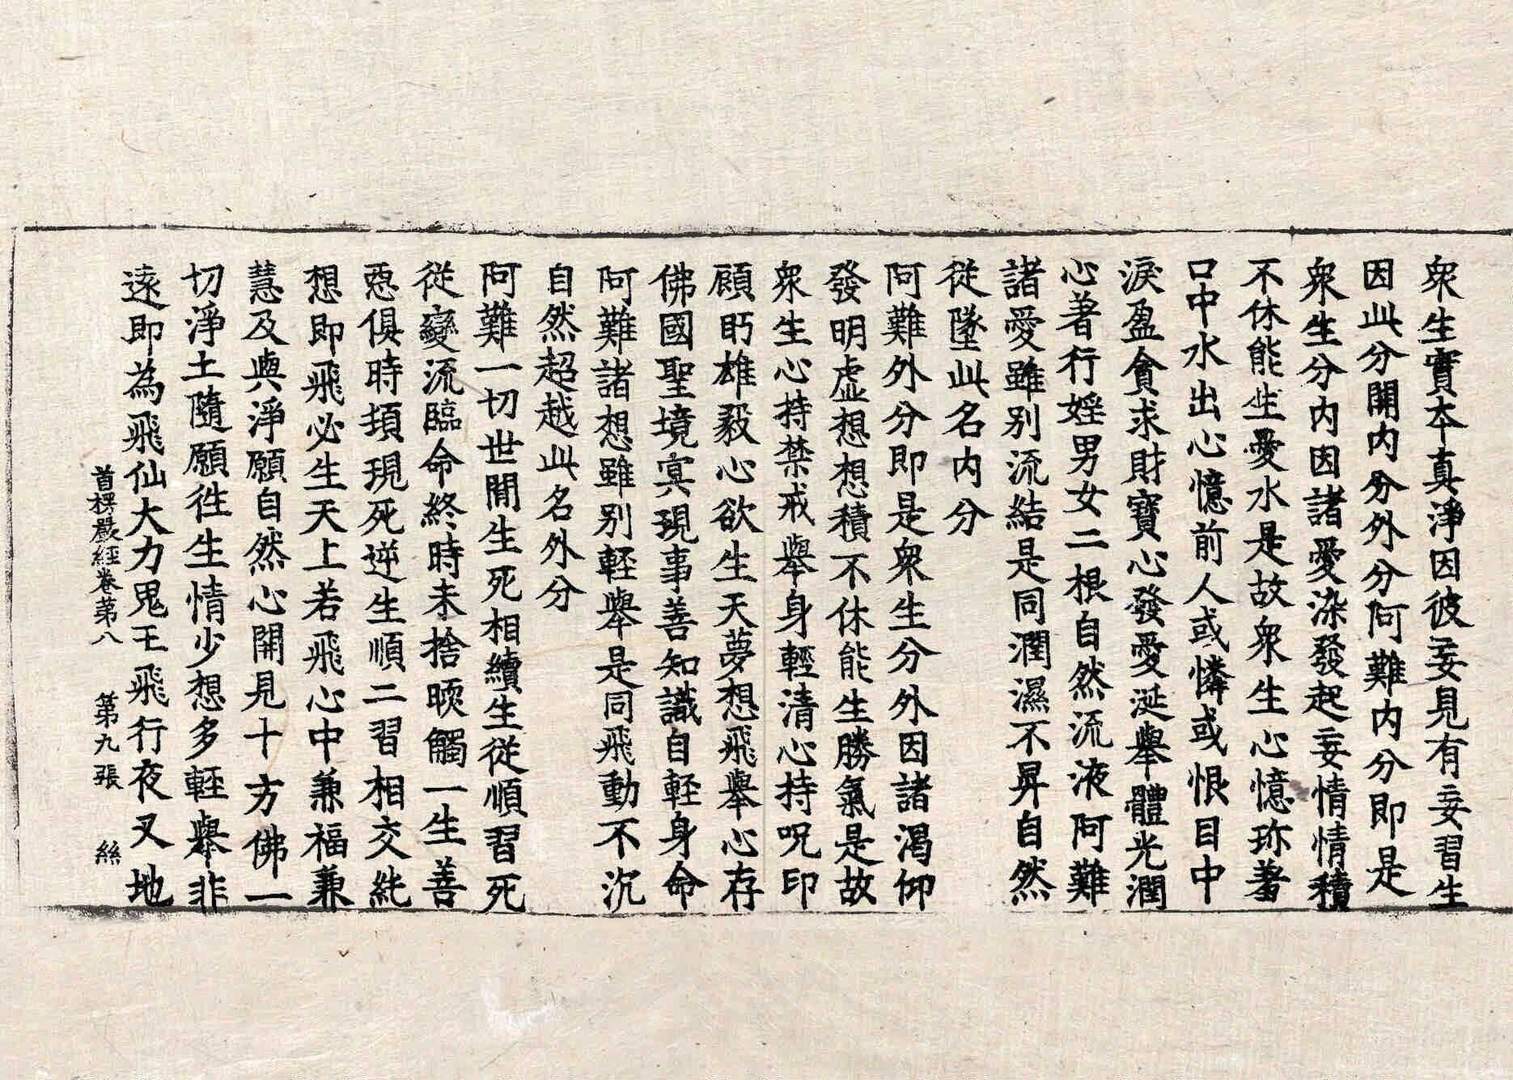 衆生實本真淨因彼妄見有妄習生
因此分開内分外分阿難内分即是
衆生分内因諸愛染發起妄情情積
不休能生愛水是故衆生心憶珎羞
口中水出心憶前人或憐或恨目中
淚盈貪求財寶心發愛涎舉體光潤
心著行婬男女二根自然流液阿難
諸愛雖别流結是同潤濕不昇自然
從墜此名内分
阿難外分即是衆生分外因諸渴仰
發明虚想想積不休能生勝氣是故
衆生心持禁戒舉身輕清心持呪印
顧眄雄毅心欲生天夢想飛舉心存
佛國聖境冥現事善知識自輕身命
阿難諸想雖别輕舉是同飛動不沉
自然超越此名外分
阿難一切世間生死相續生從順習死
從變流臨命終時未捨暖觸一生善
惡俱時頓現死逆生順二習相交純
想即飛必生天上若飛心中兼福兼
慧及與淨願自然心開見十方佛一
切淨土隨願徃生情少想多輕舉非
遠即為飛仙大力鬼王飛行夜叉地
首楞嚴經卷第八 第九張 絲